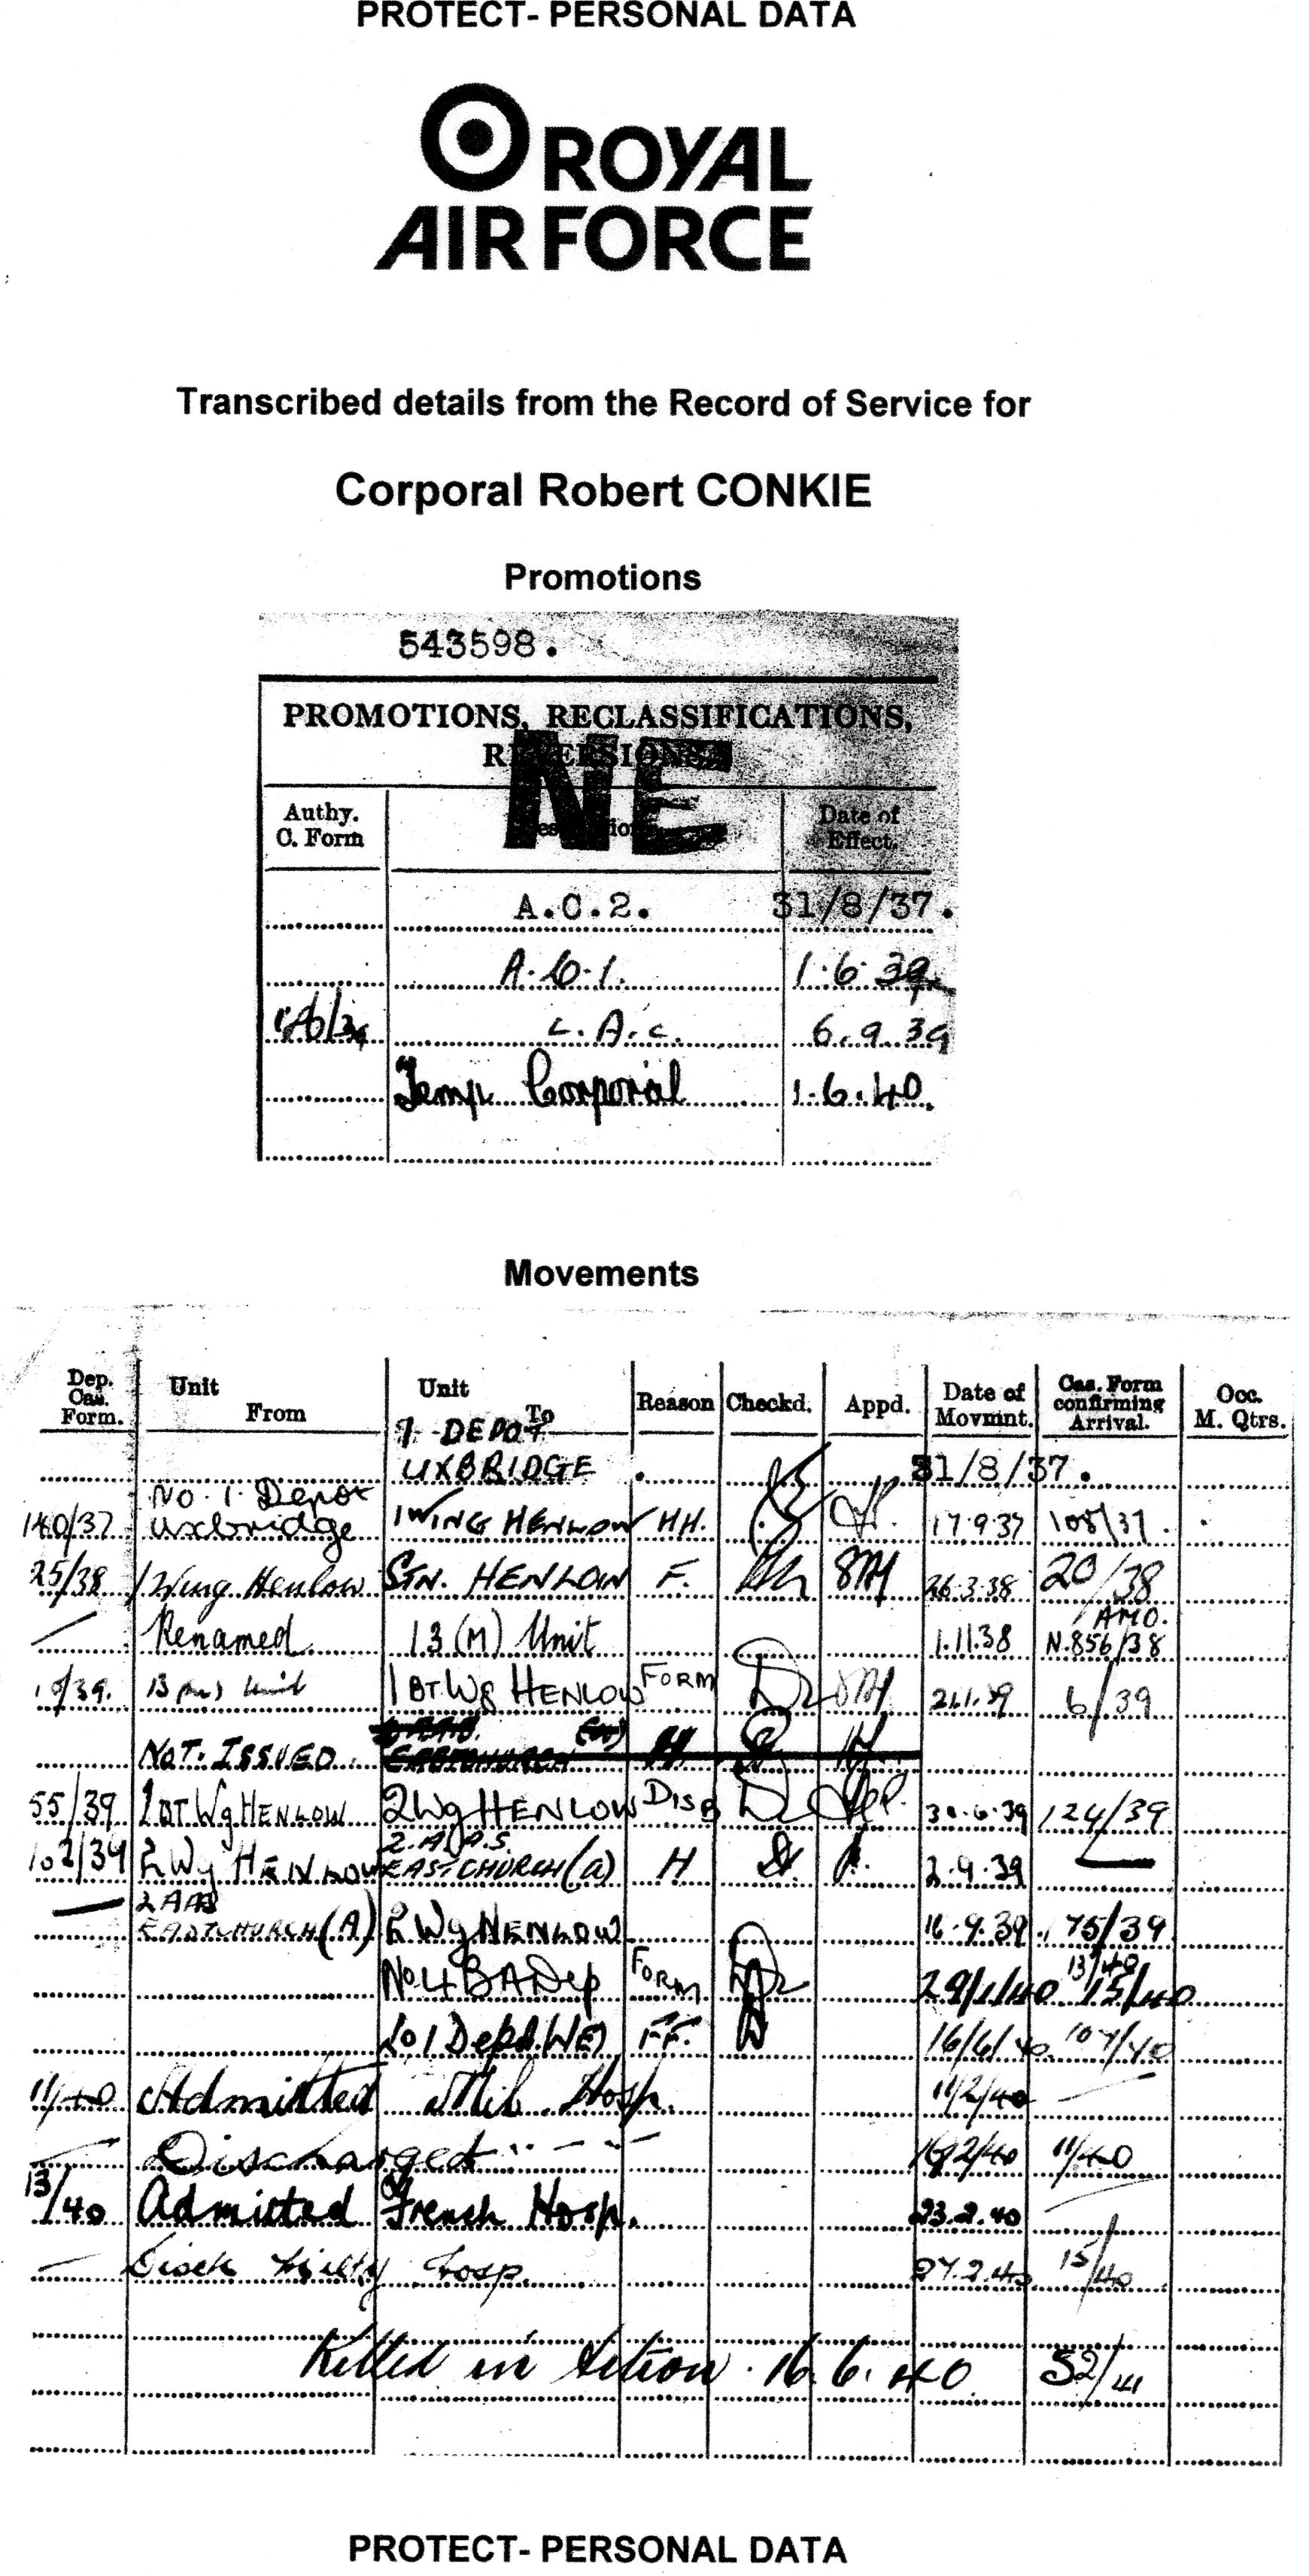 PROTECT- PERSONAL DATA
ROYAL
AIR FORCE
Transcribed details from the Record of Service for
Corporal Robert CONKIE
Promotions
543598.
PROMOTIONS, RECLASSIFICATIONS,
REVERSIONS
NE
Authy.
C. Form
Date of
Effect.
A.C.2. 31/8/37.
A.C.1. 1.6.39
L.A.C. 6.9.39
Temp Corporal 1.6.40.
Movements
Dep. Cas. Form. Unit From Unit To Reason Checkd. Appd. Date of Movmnt. Cas. Form confirming Arrival. Occ. M. Qtrs.
1 DEPOT
UXBRIDGE 31/8/37.
No. 1. Depot
140/37 Uxbridge 1 WING HENLOW HH. 17.9.37 108/37.
25/38 1 Wing Henlow STN. HENLOW F. 26.3.38 20/38
Renamed 13 (M) Unit 1.11.38 AMO. N.856/38
13 (M) Unit 1 BT Wg HENLOW FORM 6/39
NOT. ISSUED.
55/39 1 BT Wg HENLOW 2 Wg HENLOW DISB 30.6.39 124/39
102/39 2 Wg HENLOW EASTCHURCH (a) H 2.9.39
EASTCHURCH (A) 2 Wg HENLOW 16.9.39 75/39
No 4 BA Dep FORM 29/1/40 13/40 15/40
FF. 16/6/40 107/40
11/40 Admitted Mil. Hosp. 11/2/40
Discharged 11/40
13/40 Admitted French Hosp. 23.2.40
Disch Hosp 27.2.40 15/40
Killed in Action. 16.6.40 52/41
PROTECT- PERSONAL DATA